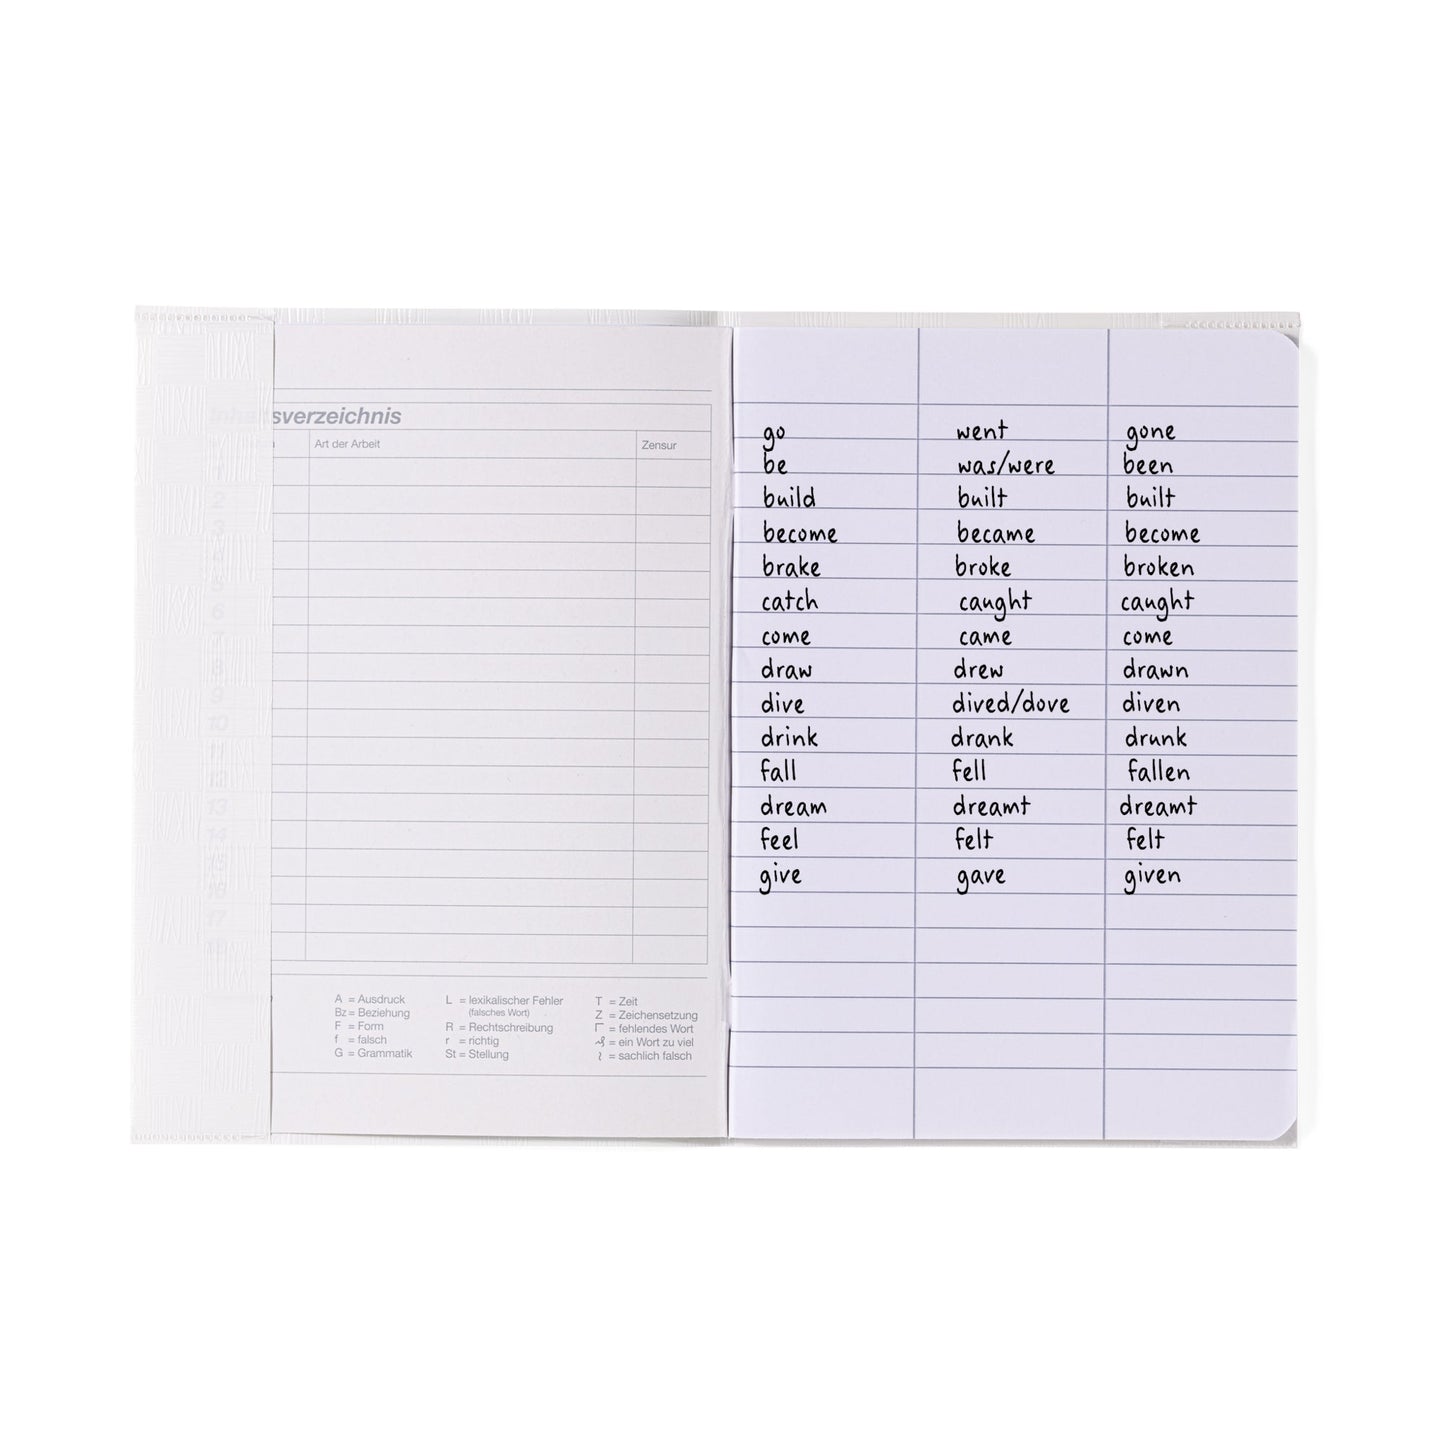 Inhaltsverzeichnis
Art der Arbeit Zensur
1
2
3
4
5
6
7
8
9
10
11
12
13
14
15
16
17
18
A = Ausdruck L = lexikalischer Fehler T = Zeit
Bz = Beziehung (falsches Wort) Z = Zeichensetzung
F = Form R = Rechtschreibung = fehlendes Wort
f = falsch r = richtig = ein Wort zu viel
G = Grammatik St = Stellung = sachlich falsch
go went gone
be was/were been
build built built
become became become
brake broke broken
catch caught caught
come came come
draw drew drawn
dive dived/dove diven
drink drank drunk
fall fell fallen
dream dreamt dreamt
feel felt felt
give gave given